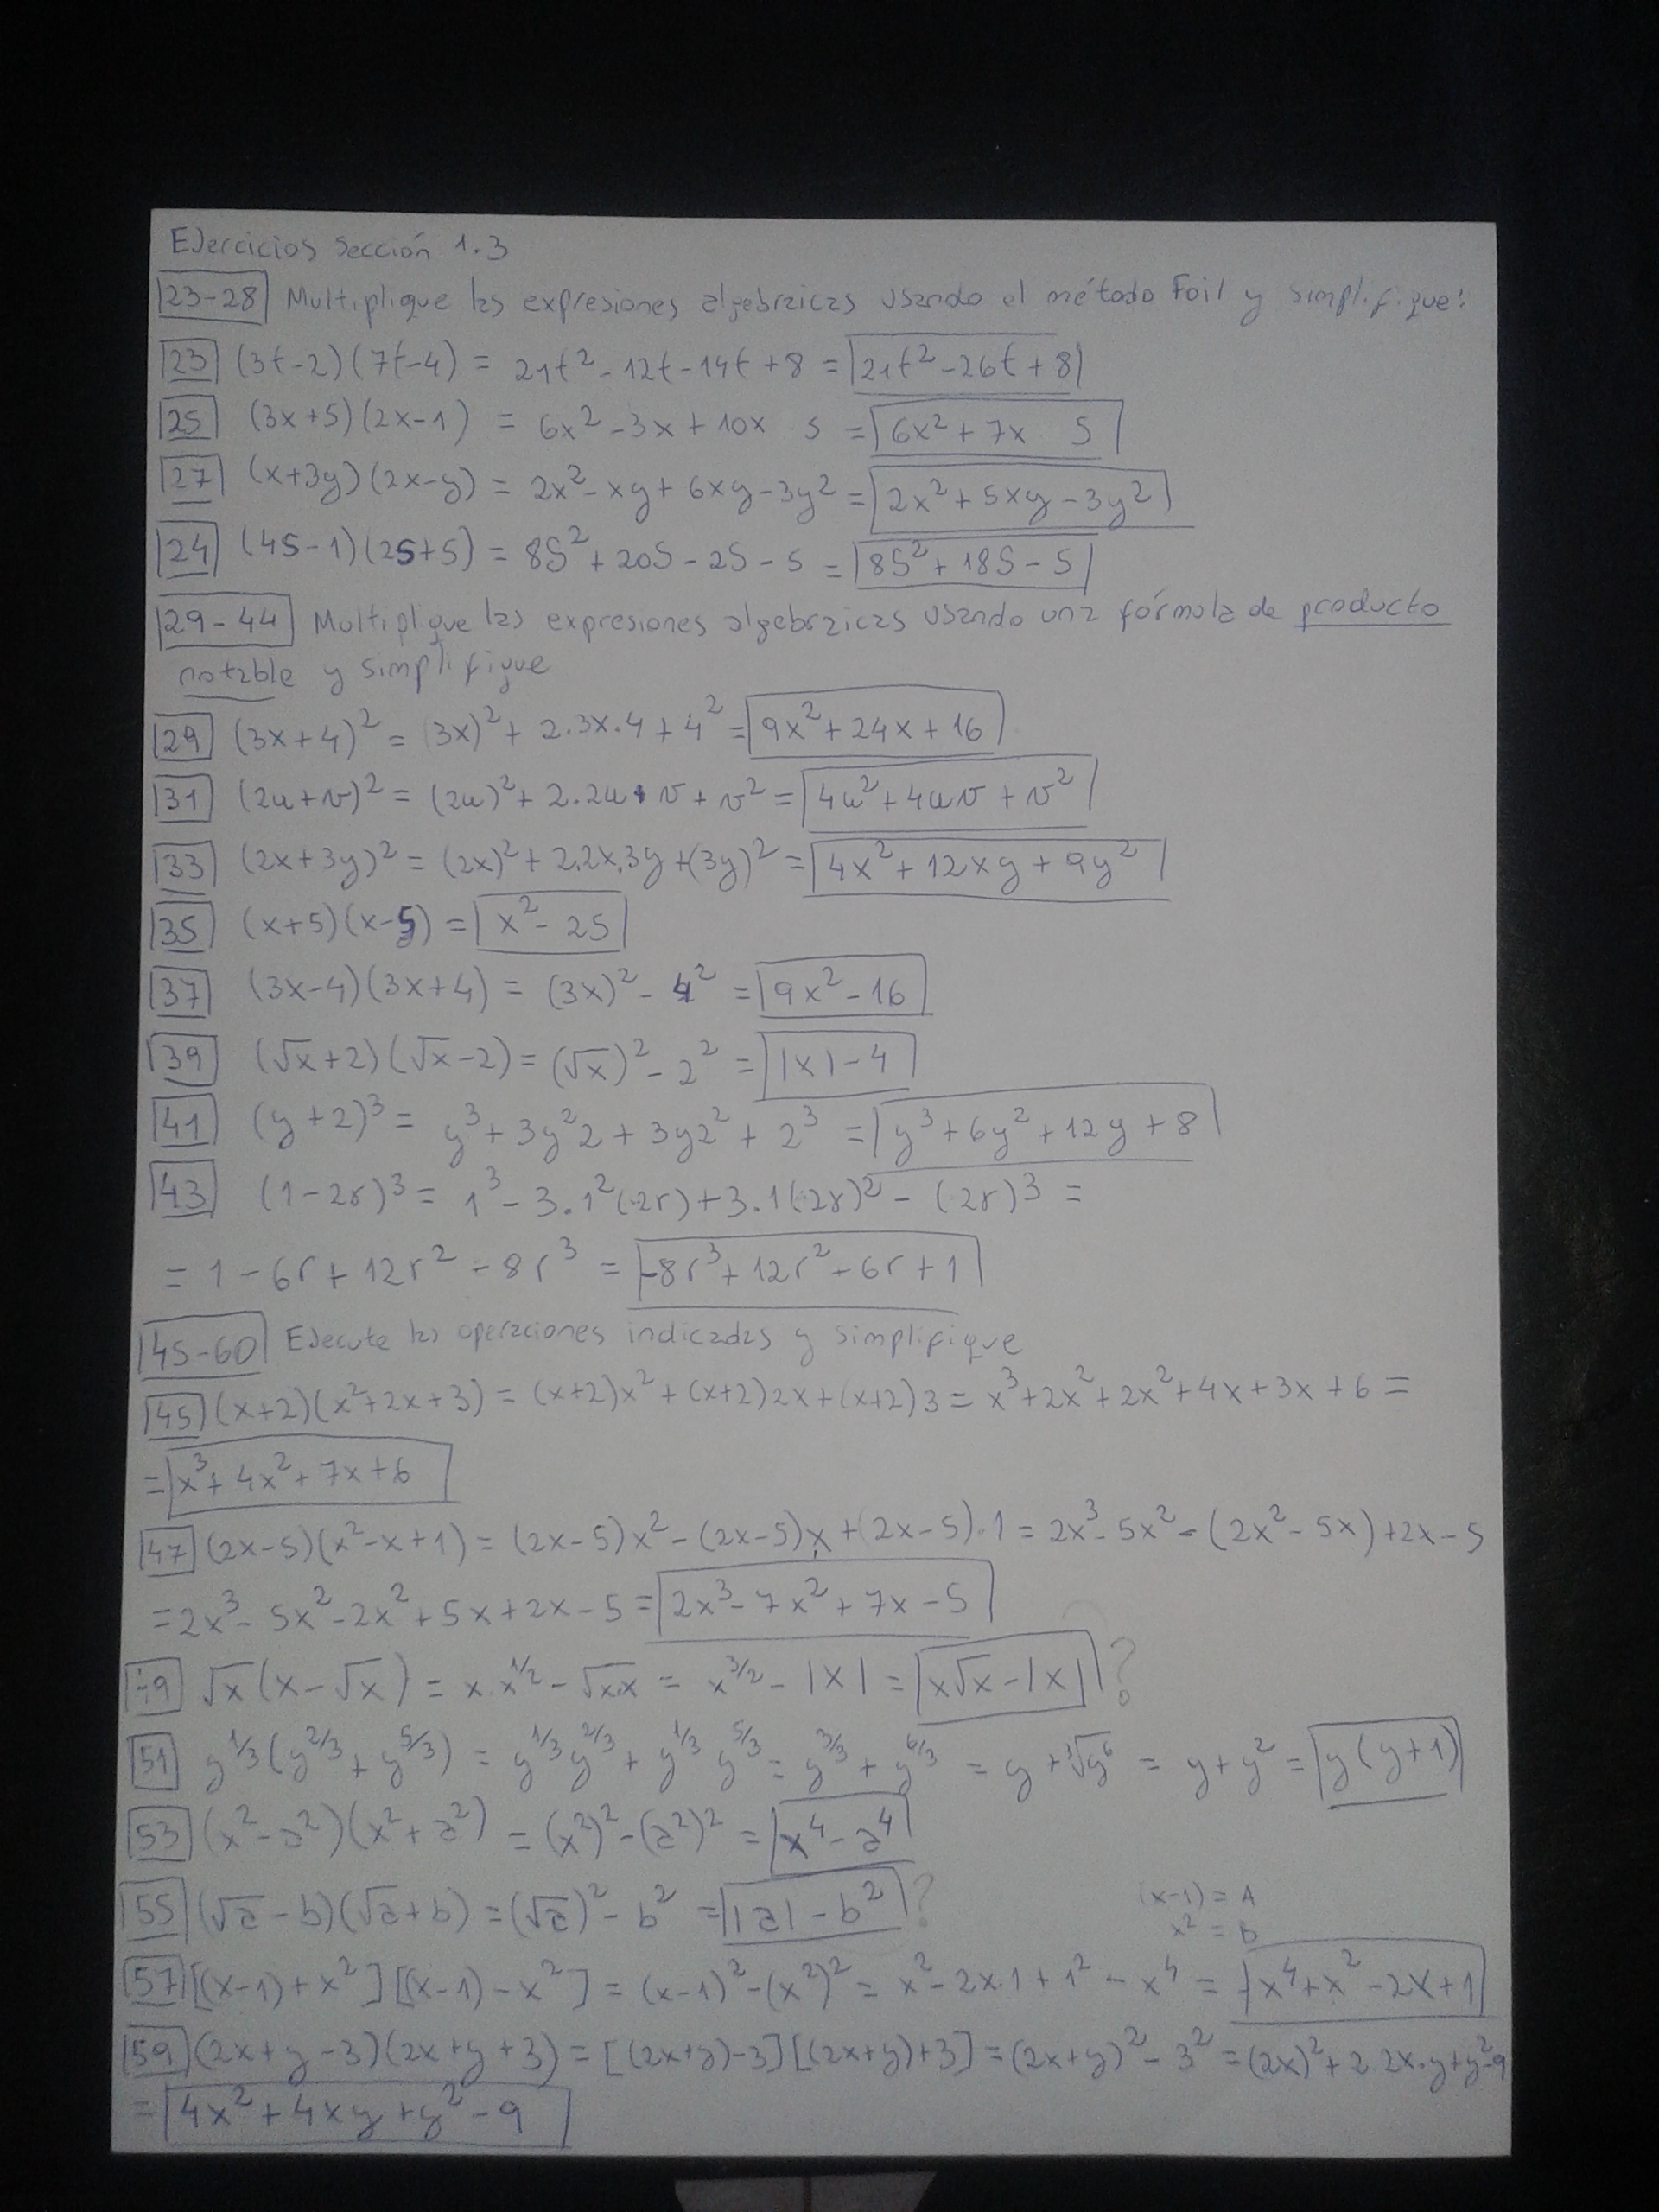 Ejercicios Sección 1.3
23-28 Multiplique las expresiones algebraicas usando el método Foil y simplifique:
23 (3t-2)(7t-4) = 21t² - 12t - 14t + 8 = 21t² - 26t + 8
25 (3x+5)(2x-1) = 6x² - 3x + 10x 5 = 6x² + 7x 5
27 (x+3y)(2x-y) = 2x² - xy + 6xy - 3y² = 2x² + 5xy - 3y²
24 (4S-1)(2S+5) = 8S² + 20S - 2S - 5 = 8S² + 18S - 5
29-44 Multiplique las expresiones algebraicas usando una fórmula de producto
notable y simplifique
29 (3x+4)² = (3x)² + 2·3x·4 + 4² = 9x² + 24x + 16
31 (2u+v)² = (2u)² + 2·2u·v + v² = 4u² + 4uv + v²
33 (2x+3y)² = (2x)² + 2·2x·3y + (3y)² = 4x² + 12xy + 9y²
35 (x+5)(x-5) = x² - 25
37 (3x-4)(3x+4) = (3x)² - 4² = 9x² - 16
39 (√x+2)(√x-2) = (√x)² - 2² = |x| - 4
41 (y+2)³ = y³ + 3y²2 + 3y2² + 2³ = y³ + 6y² + 12y + 8
43 (1-2r)³ = 1³ - 3·1²(2r) + 3·1(2r)² - (2r)³ =
= 1 - 6r + 12r² - 8r³ = -8r³ + 12r² - 6r + 1
45-60 Ejecute las operaciones indicadas y simplifique
45 (x+2)(x²+2x+3) = (x+2)x² + (x+2)2x + (x+2)3 = x³ + 2x² + 2x² + 4x + 3x + 6 =
= x³ + 4x² + 7x + 6
47 (2x-5)(x²-x+1) = (2x-5)x² - (2x-5)x + (2x-5)·1 = 2x³ - 5x² - (2x² - 5x) + 2x - 5
= 2x³ - 5x² - 2x² + 5x + 2x - 5 = 2x³ - 7x² + 7x - 5
49 √x(x-√x) = x·x^1/2 - √x·x = x^3/2 - |x| = x√x - |x| ?
51 y^1/3(y^2/3 + y^5/3) = y^1/3 y^2/3 + y^1/3 y^5/3 = y^3/3 + y^6/3 = y + ³√y⁶ = y + y² = y(y+1)
53 (x²-a²)(x²+a²) = (x²)² - (a²)² = x⁴ - a⁴
55 (√a-b)(√a+b) = (√a)² - b² = |a| - b² ?
(x-1) = A
x² = b
57 [(x-1)+x²][(x-1)-x²] = (x-1)² - (x²)² = x² - 2x·1 + 1² - x⁴ = -x⁴ + x² - 2x + 1
59 (2x+y-3)(2x+y+3) = [(2x+y)-3][(2x+y)+3] = (2x+y)² - 3² = (2x)² + 2·2x·y + y² - 9
= 4x² + 4xy + y² - 9